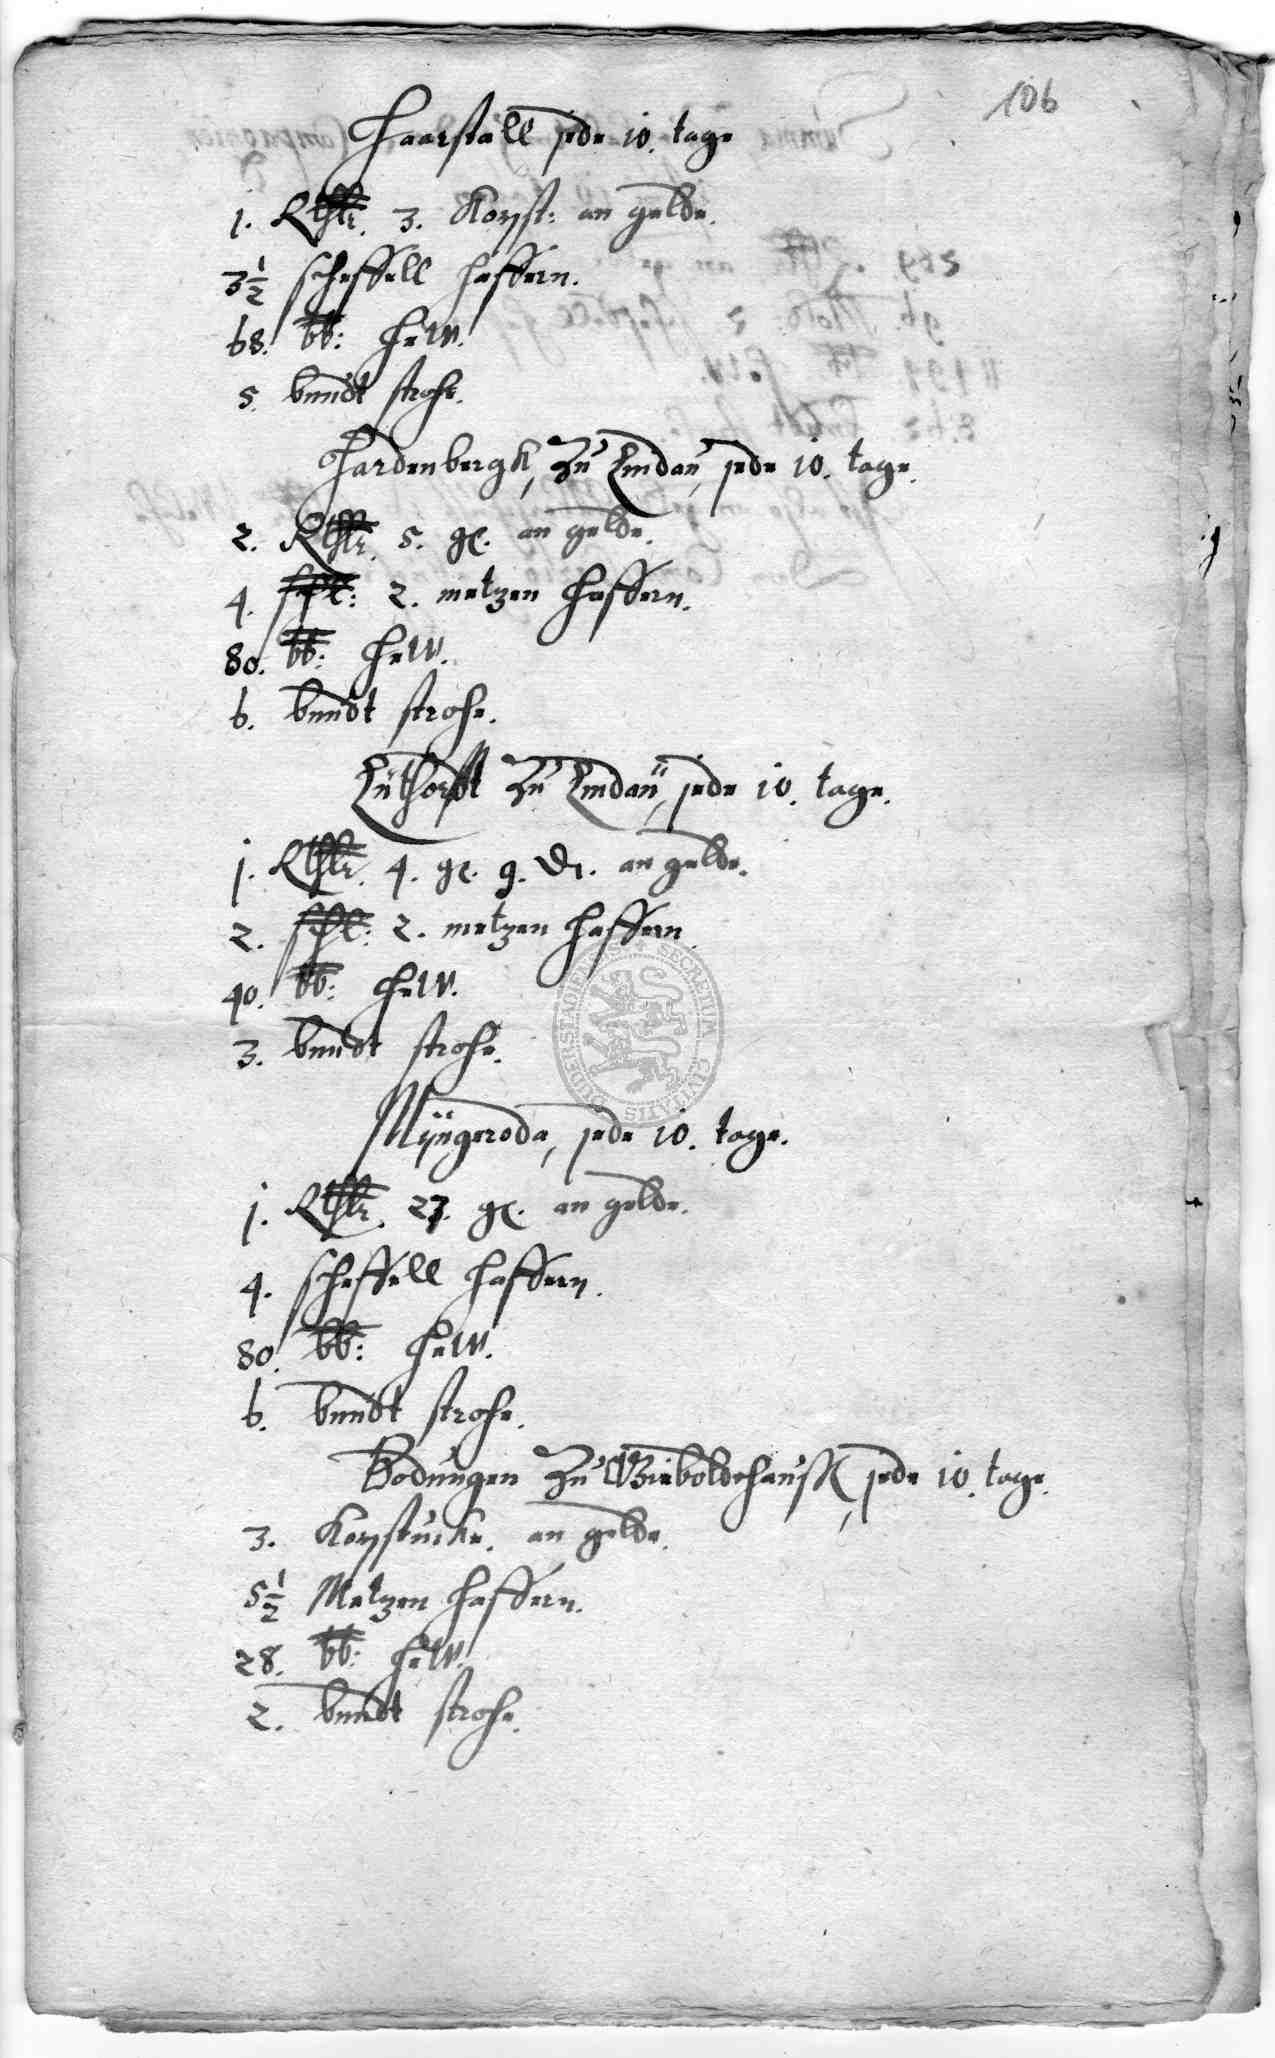 106
Haarstall jede 10. tage
1. Rthlr. 3. Kopst: an gelde.
3½ scheffell haffern.
68. lb: hew.
5. bundt strohe.
Hardenbergk, zu Lindau, jede 10. tage.
2. Rthlr. 5. gl. an gelde.
4. schl: 2. metzen haffern.
80. lb: hew.
6. bundt strohe.
Lüthorst zu Lindau, jede 10. tage.
1. Rthlr. 4. gl. 9. d. an gelde.
2. schl: 2. metzen haffern.
40. lb: hew.
3. bundt strohe.
Myngeroda, jede 10. tage.
1. Rthlr. 27. gl. an gelde.
4. scheffell haffern.
80. lb: hew.
6. bundt strohe.
Bodungen zu Gieboldehausß, jede 10. tage.
3. Kopstucke. an gelde.
5½ Metzen haffern.
28. lb: hew.
2. bundt strohe.
SECRETUM CIVITATIS DUDERSTADIENSIS